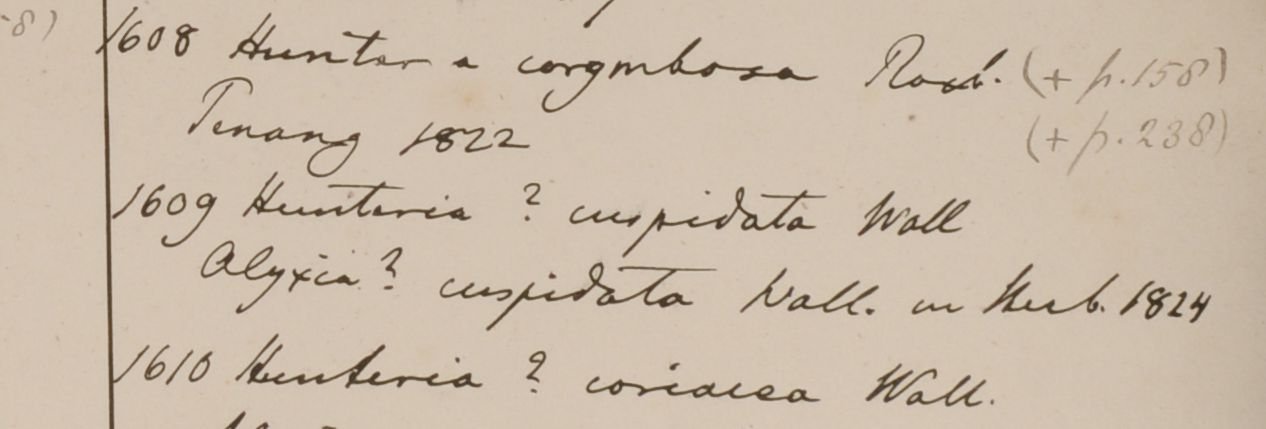 1608 Hunter a corymbosa Roxb. (+ p.158)
Penang 1822 (+ p.238)
1609 Hunteria ? cuspidata Wall
Alyxia ? cuspidata Wall. in Herb. 1824
1610 Hunteria ? coriacea Wall.